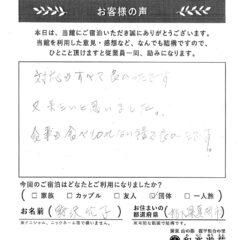 お客様の声
本日は、当館にご宿泊いただき誠にありがとうございます。
当館を利用した意見・感想など、なんでも結構ですので、
ひとこと頂けますと従業員一同、励みになります。
対応がすべて良かったです
又来たいと思いました。
食事も食べ切れない程で良かったです。
今回のご宿泊はどなたとご利用になりましたか?
□家族 □カップル □友人 ☑団体 □一人旅
お名前
※イニシャル、ニックネーム等で構いません。
お住まいの
都道府県